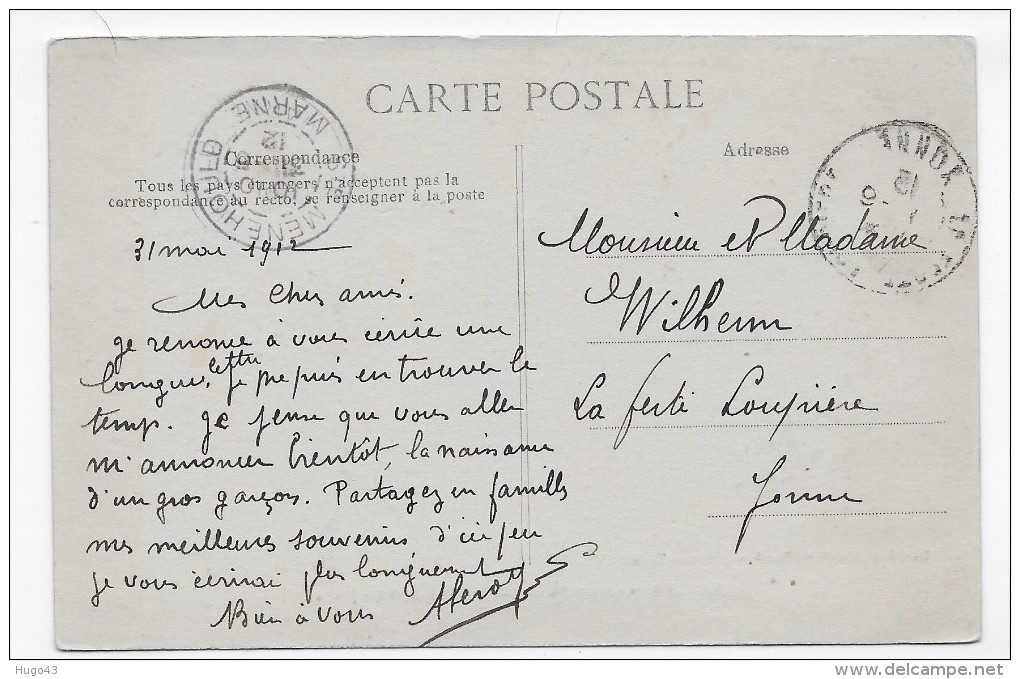 CARTE POSTALE
Correspondance
Adresse
Tous les pays étrangers n'acceptent pas la
correspondance au recto, se renseigner à la poste
STE MENEHOULD
MARNE
12
YONNE
12
31 mai 1912
Mes chers amis.
je renonce à vous écrire une
longue lettre, je ne puis en trouver le
temp. Je pense que vous allez
m'annoncer bientôt, la naissance
d'un gros garçon. Partagez en familles
mes meilleures souvenirs d'ici peu
je vous écrirai plus longuement
Bien à vous
Monsieur et Madame
Wilhem
La ferté Loupière
Yonne
Hugo43
www.delcampe.net